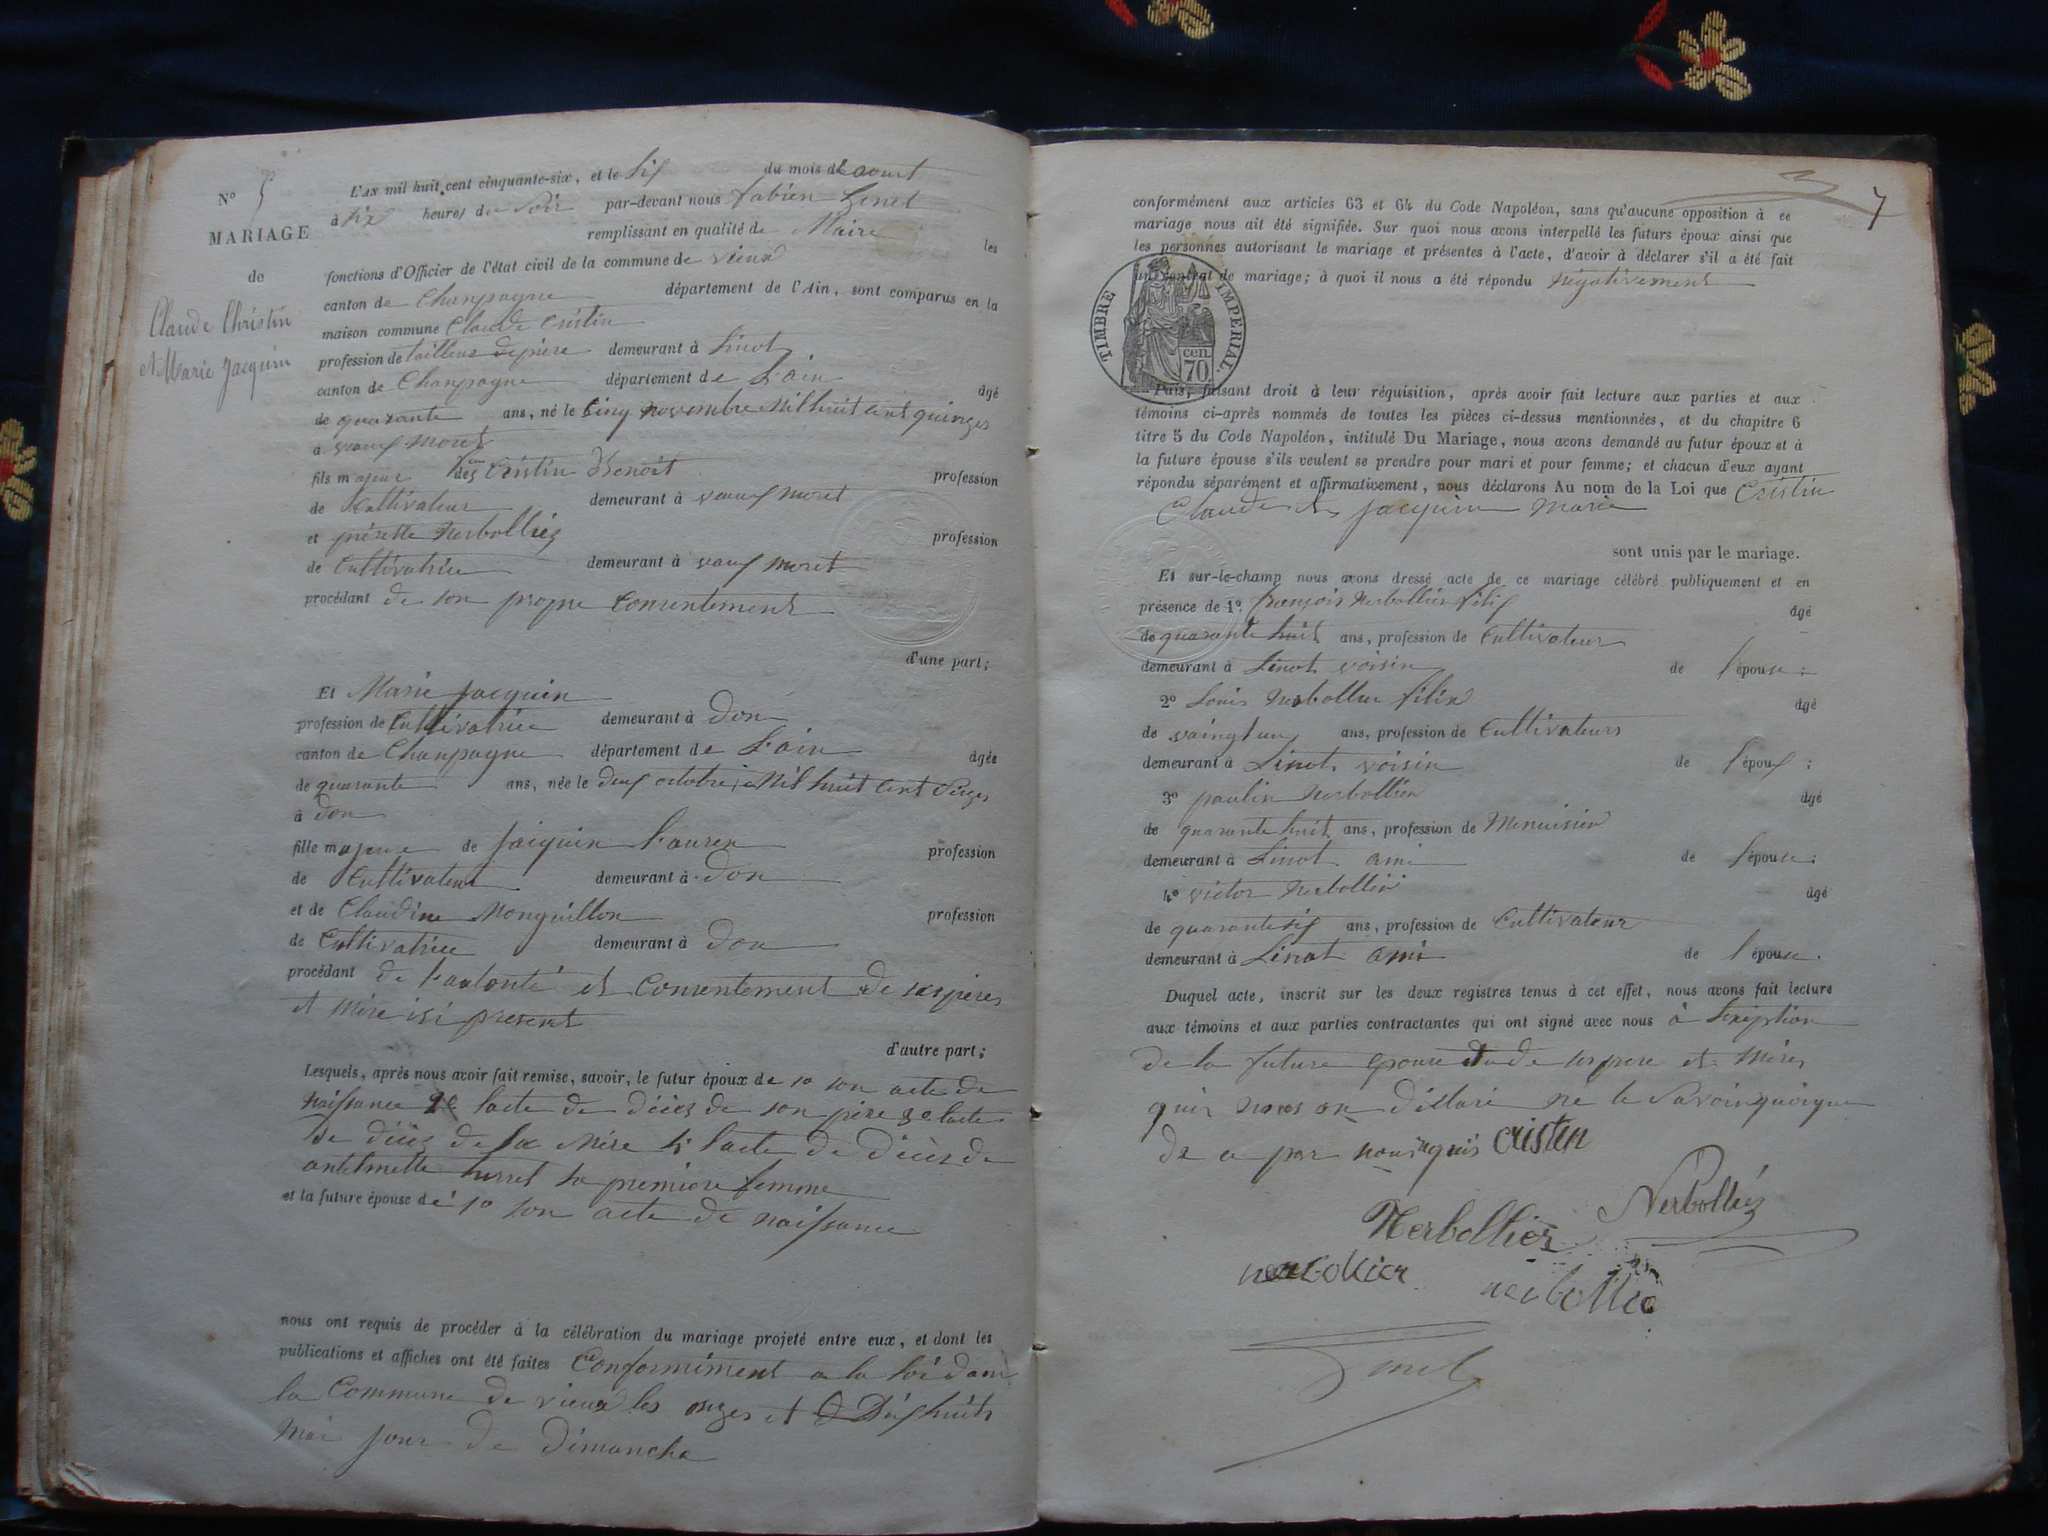 N° 5
MARIAGE
de
Claude Christin
et Marie Jacquin
L'AN mil huit cent cinquante-six, et le Six du mois de aout
à six heures du soir par-devant nous fabien
remplissant en qualité de Maire les
fonctions d'Officier de l'état civil de la commune de vieux
canton de Champagne département de l'Ain, sont comparus en la
maison commune Claude Cristin
profession de tailleur de piere demeurant à Linot
canton de Champagne département de L'ain âgé
de quarante ans, né le Cinq novembre Mil huit Cent quinzes
à
fils majeur des Cristin Benoit profession
de Cultivateur demeurant à
et Nerbolliez profession
de Cultivatrice demeurant à
procédant de son propre Consentement
d'une part;
Et Marie Jacquin
profession de Cultivatrice demeurant à don
canton de Champagne département de L'ain âgée
de quarante ans, née le deux octobre Mil huit Cent
à don
fille majeure de Jaiquin Lauren profession
de Cultivateur demeurant à don
et de Claudine Monguillon profession
de Cultivatrice demeurant à don
procédant de et Consentement de ses peres
et Mere isi present
d'autre part;
Lesquels, après nous avoir fait remise, savoir, le futur époux de 1° son acte de
naissance 2° lacte de décès de son père 3° lacte
de décès de la Mère 4° lacte de décès de
sa premiere femme
et la future épouse de 1° son acte de naissance
nous ont requis de procéder à la célébration du mariage projeté entre eux, et dont les
publications et affiches ont été faites Conformiment a la loi dans
la Commune de vieux les onzes et Dix huit
Mai jour de dimanche
7
conformément aux articles 63 et 64 du Code Napoléon, sans qu'aucune opposition à ce
mariage nous ait été signifiée. Sur quoi nous avons interpellé les futurs époux ainsi que
les personnes autorisant le mariage et présentes à l'acte, d'avoir à déclarer s'il a été fait
un contrat de mariage; à quoi il nous a été répondu négativement
TIMBRE IMPERIAL.
70 cen.
Puis, faisant droit à leur réquisition, après avoir fait lecture aux parties et aux
témoins ci-après nommés de toutes les pièces ci-dessus mentionnées, et du chapitre 6
titre 5 du Code Napoléon, intitulé Du Mariage, nous avons demandé au futur époux et à
la future épouse s'ils veulent se prendre pour mari et pour femme; et chacun d'eux ayant
répondu séparément et affirmativement, nous déclarons Au nom de la Loi que Cristin
Claude et Jacquin Marie
sont unis par le mariage.
Et sur-le-champ nous avons dressé acte de ce mariage célébré publiquement et en
présence de 1° françois Nerbollier filix âgé
de quarante huit ans, profession de Cultivateur
demeurant à Linot voisin de l'épouse;
2° Louis Nerbollier filix âgé
de vaingt un ans, profession de Cultivateur
demeurant à Linot voisin de l'époux;
3° paulin Nerbollier âgé
de quarante huit ans, profession de Menuisier
demeurant à Linot ami de l'épouse;
4° victor Nerbollier âgé
de quarante six ans, profession de Cultivateur
demeurant à Linot ami de l'épouse.
Duquel acte, inscrit sur les deux registres tenus à cet effet, nous avons fait lecture
aux témoins et aux parties contractantes qui ont signé avec nous à lexeption
de la future epouse et de ses pere et Mere
qui nous on diclaré ne le savoir quoique
de ce par nous cristin
Nerbollier Nerbolliéz
nerbollier nerbollié